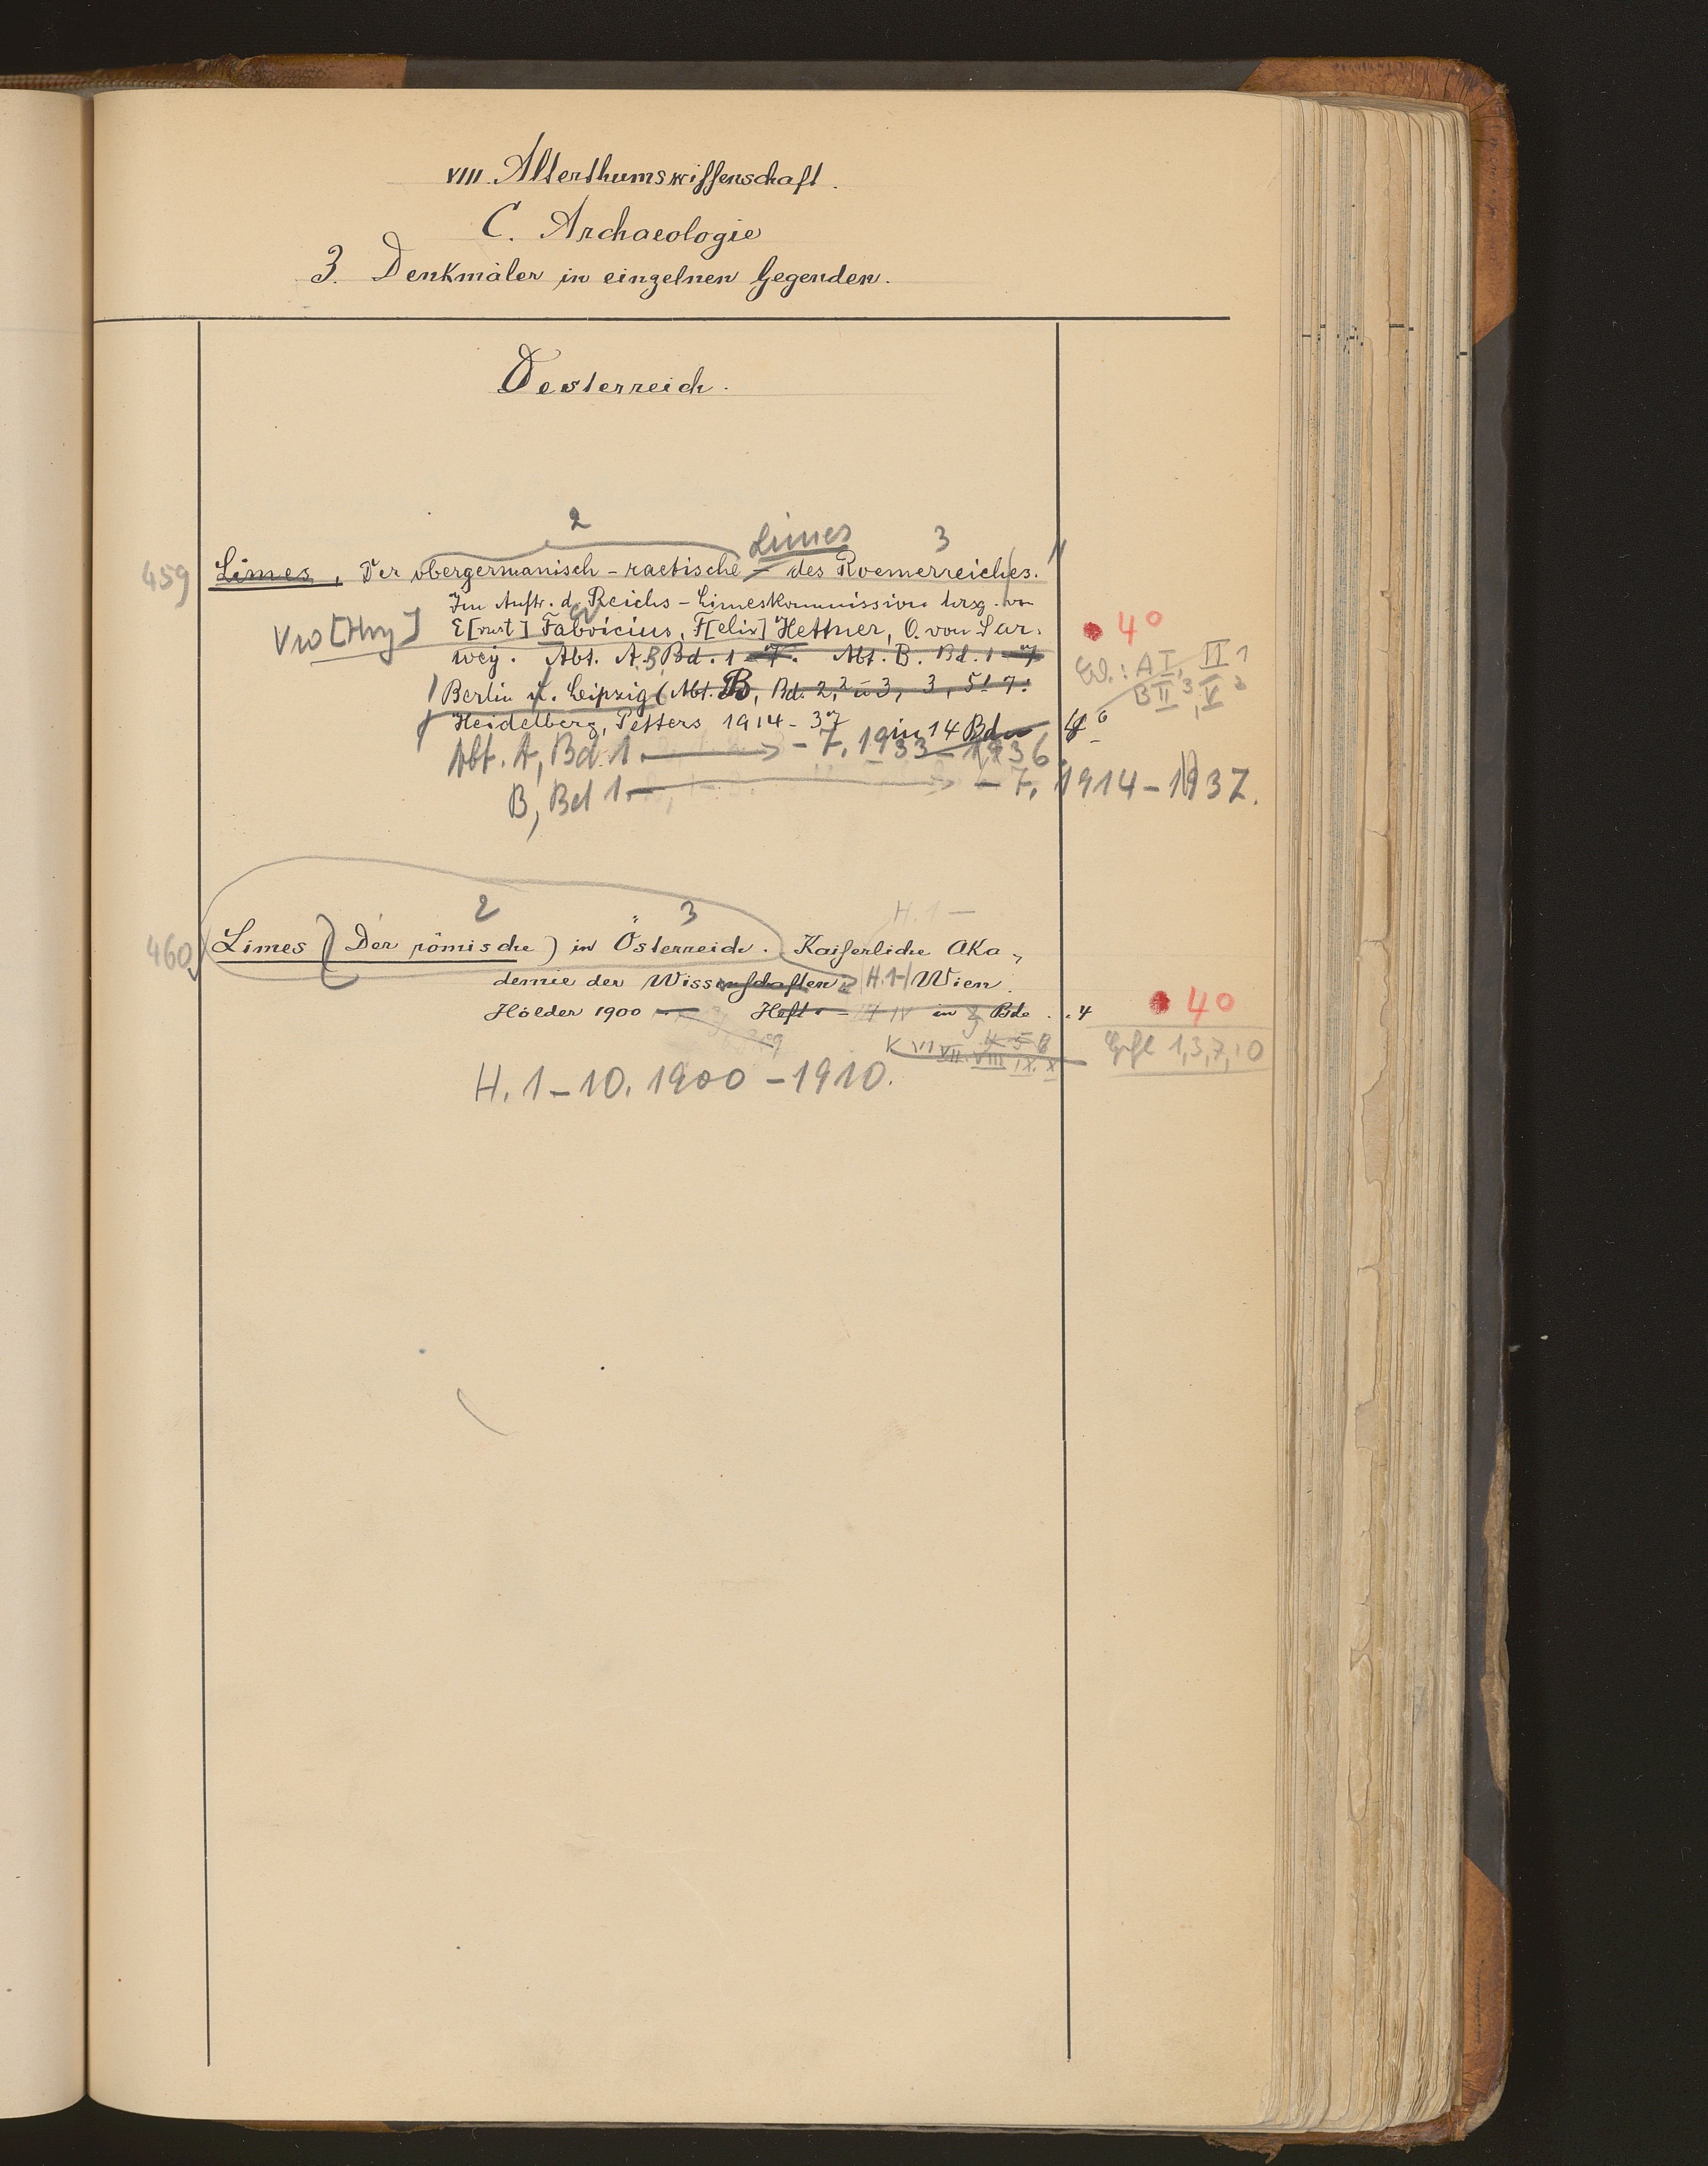 VIII. Alterthumswissenschaft.
C. Archaeologie
3. Denkmäler in einzelnen Gegenden.
Oesterreich.
2 Limes 3
459 Limes, Der obergermanisch-raetische – des Roemerreiches.
Im Auftr. d. Reichs-Limeskommission hrsg. von
E[rnst] Fabricius, F[elix] Hettner, O. von Sar-
wey. Abt. A, Bd. 1–7. Abt. B. Bd. 1–7
Berlin u. Leipzig (Abt. B, Bd. 2,2 u 3, 3, 5! 7:
Heidelberg, Petters 1914–37 in 14 Bdn 4°
4°
A I, II 1
B II 3, V 2
Abt. A, Bd. 1. – 7. 1933–1936.
B, Bd 1. – 7. 1914–1937.
2 3 H. 1 –
460 Limes (Der römische) in Österreich. Kaiserliche Aka-
demie der Wissenschaften H. 1– Wien.
Hölder 1900 – Heft in Bde. 4
40
VII VIII IX. X
1,3,7,10
H. 1–10. 1900–1910.